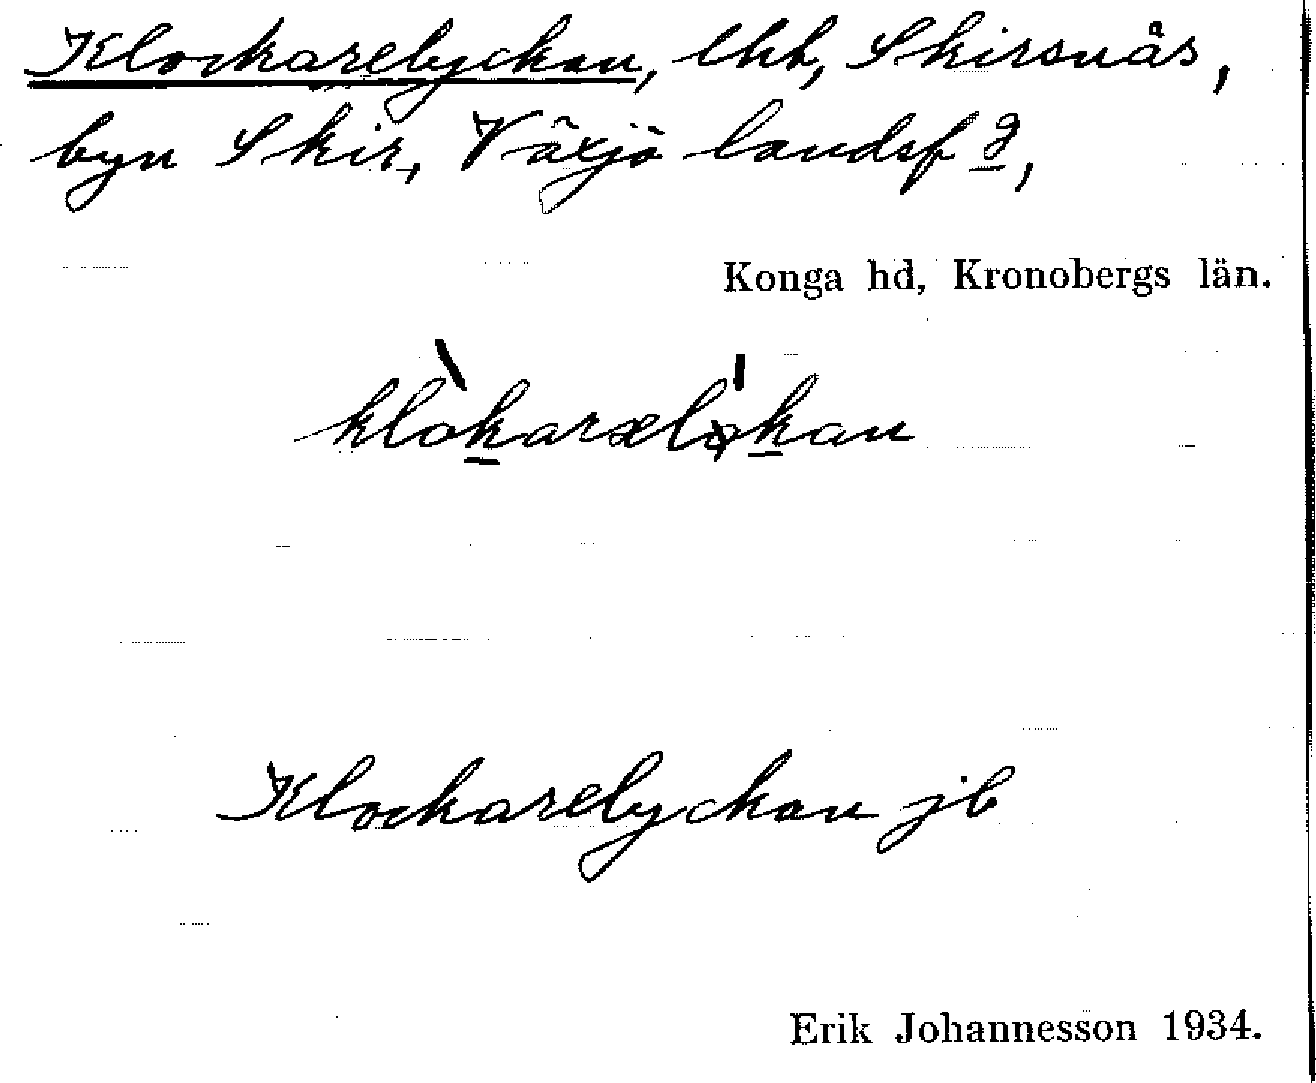 Klockarelyckan, lht, Skirsnäs,
byn Skir, Växjö landsf g,
Konga hd, Kronobergs län.
Klockarelyckan jb
Erik Johannesson 1934.